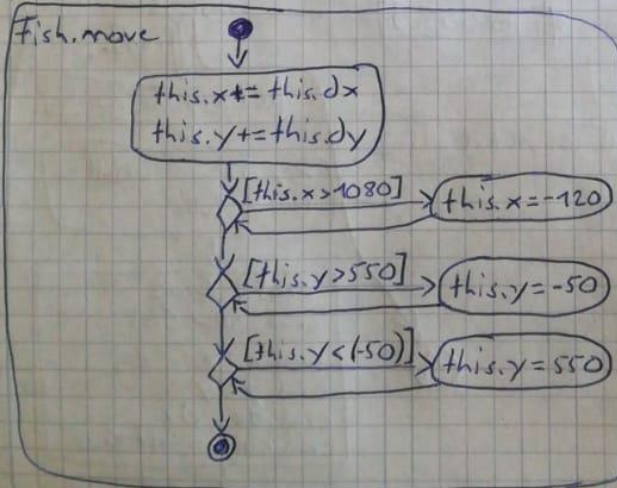 Fish.move
this.x+= this.dx
this.y+=this.dy
[this.x>1080]
this.x=-120
[this.y>550]
this.y=-50
[this.y<(-50)]
this.y=550